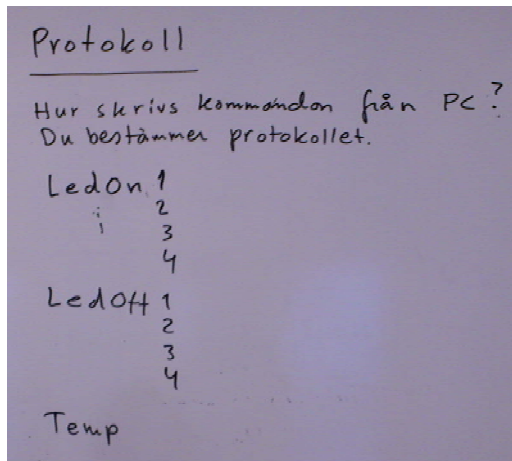 Protokoll
Hur skrivs kommandon från PC?
Du bestämmer protokollet.
LedOn 1
2
3
4
LedOff 1
2
3
4
Temp